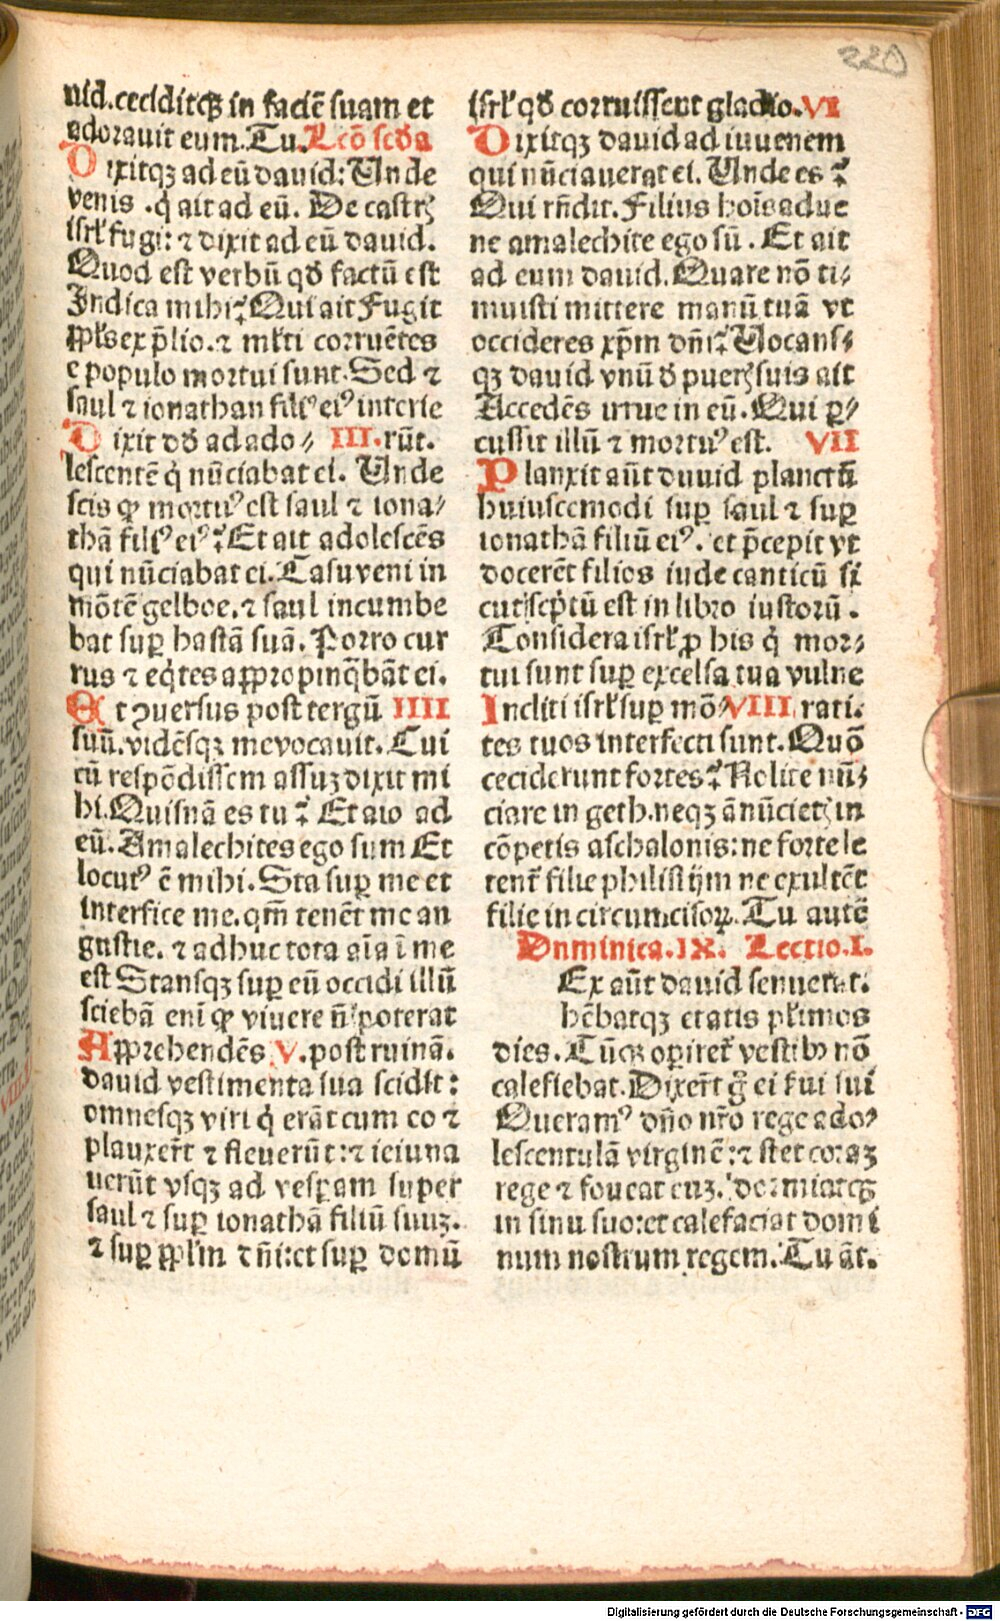 220
uid. ceciditqꝫ in faciē suam et
adorauit eum. Tu. Lcō scďa
Dixitqꝫ ad eū dauid: Unde
venis . q̇ ait ad eū. De castrꝫ
isrł fugi: ⁊ dixit ad eū dauid.
Quod est verbū qď factū est
Indica mihi: Qui ait Fugit
ppl's ex p̄lio. ⁊ ml'ti corruētes
e populo mortui sunt. Sed ⁊
saul ⁊ ionathan fili⁹ ei⁹ interie
Dixit dď ad ado⸗ III. rūt.
lescentē q̇ nūciabat ei. Unde
scis ꝙ mortu⁹ est saul ⁊ iona⸗
thā fili⁹ ei⁹: Et ait adolescēs
qui nūciabat ei. Casu veni in
mōtē gelboe. ⁊ saul incumbe
bat suꝑ hastā suā. Porro cur
rus ⁊ eq̇tes appropinq̄bāt ei.
Et ꝯuersus post tergū IIII
suū. vidēsqꝫ me vocauit. Cui
cū respōdissem assuꝫ dixit mi
hi. Quisnā es tu: Et aio ad
eū. Amalechites ego sum Et
locut⁹ ē mihi. Sta suꝑ me et
interfice me. qm̄ tenēt me an
gustie. ⁊ adhuc tota aīa ī me
est Stansqꝫ suꝑ eū occidi illū
sciebā enī ꝙ viuere n̄ poterat
Apprehendēs V. post ruinā.
dauid vestimenta sua scidit:
omnesqꝫ viri q̇ erāt cum eo ⁊
planxer̄t ⁊ fleuerūt: ⁊ ieiuna
uerūt vsqꝫ ad vesꝑam super
saul ⁊ suꝑ ionathā filiū suuꝫ.
⁊ suꝑ ppl'm dn̄i: et suꝑ domū
isrł qď corruissent gladio. VI
Dixitqꝫ dauid ad iuuenem
qui nūciauerat ei. Unde es :
Qui rn̄dit. Filius hoīs adue
ne amalechite ego sū . Et ait
ad eum dauid. Quare nō ti⸗
muisti mittere manū tuā vt
occideres xp̄m dn̄i: Uocans⸗
qꝫ dauid vnū ď puerꝫ suis ait
Accedēs irrue in eū. Qui ꝑ⸗
cussit illū ⁊ mortu⁹ est. VII
Planxit aūt dauid planctū
huiuscemodi suꝑ saul ⁊ suꝑ
ionathā filiū ei⁹. et p̄cepit vt
docerēt filios iude canticū si
cut sc̄ptū est in libro iustorū .
Considera isrł ꝓ his q̇ mor⸗
tui sunt suꝑ excelsa tua vulne
Incliti isrł suꝑ mō⸗ VIII rati.
tes tuos interfecti sunt. Quō
ceciderunt fortes: Nolite nū⸗
ciare in geth. neqꝫ ānūcietꝫ in
cōpetis aschalonis: ne forte le
tent̄ filie philistijm ne exultēt
filie in circumcisoꝝ. Tu autē
Dnminica. IX. Lectio. I.
Ex aūt dauid senuerat:
hēbatqꝫ etatis pl'imos
dies. Cūqꝫ oꝑiret̄ vestibꝫ nō
calefiebat. Dixer̄t g̊ ei ẜui sui
Queram⁹ dn̄o nr̄o rege ado⸗
lescentulā virginē: ⁊ stet coraꝫ
rege ⁊ foueat euꝫ. dormiatqꝫ
in sinu suo: et calefaciat domi
num nostrum regem. Tu āt.
Digitalisierung gefördert durch die Deutsche Forschungsgemeinschaft - DFG